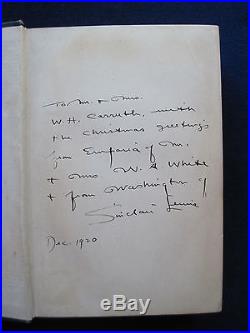 To Mr. & Mrs.
W. H. Carruth, with
the Christmas greetings
from Emporia of Mr.
& Mrs. W. A. White
& from Washington of
Sinclair Lewis
Dec. 1920